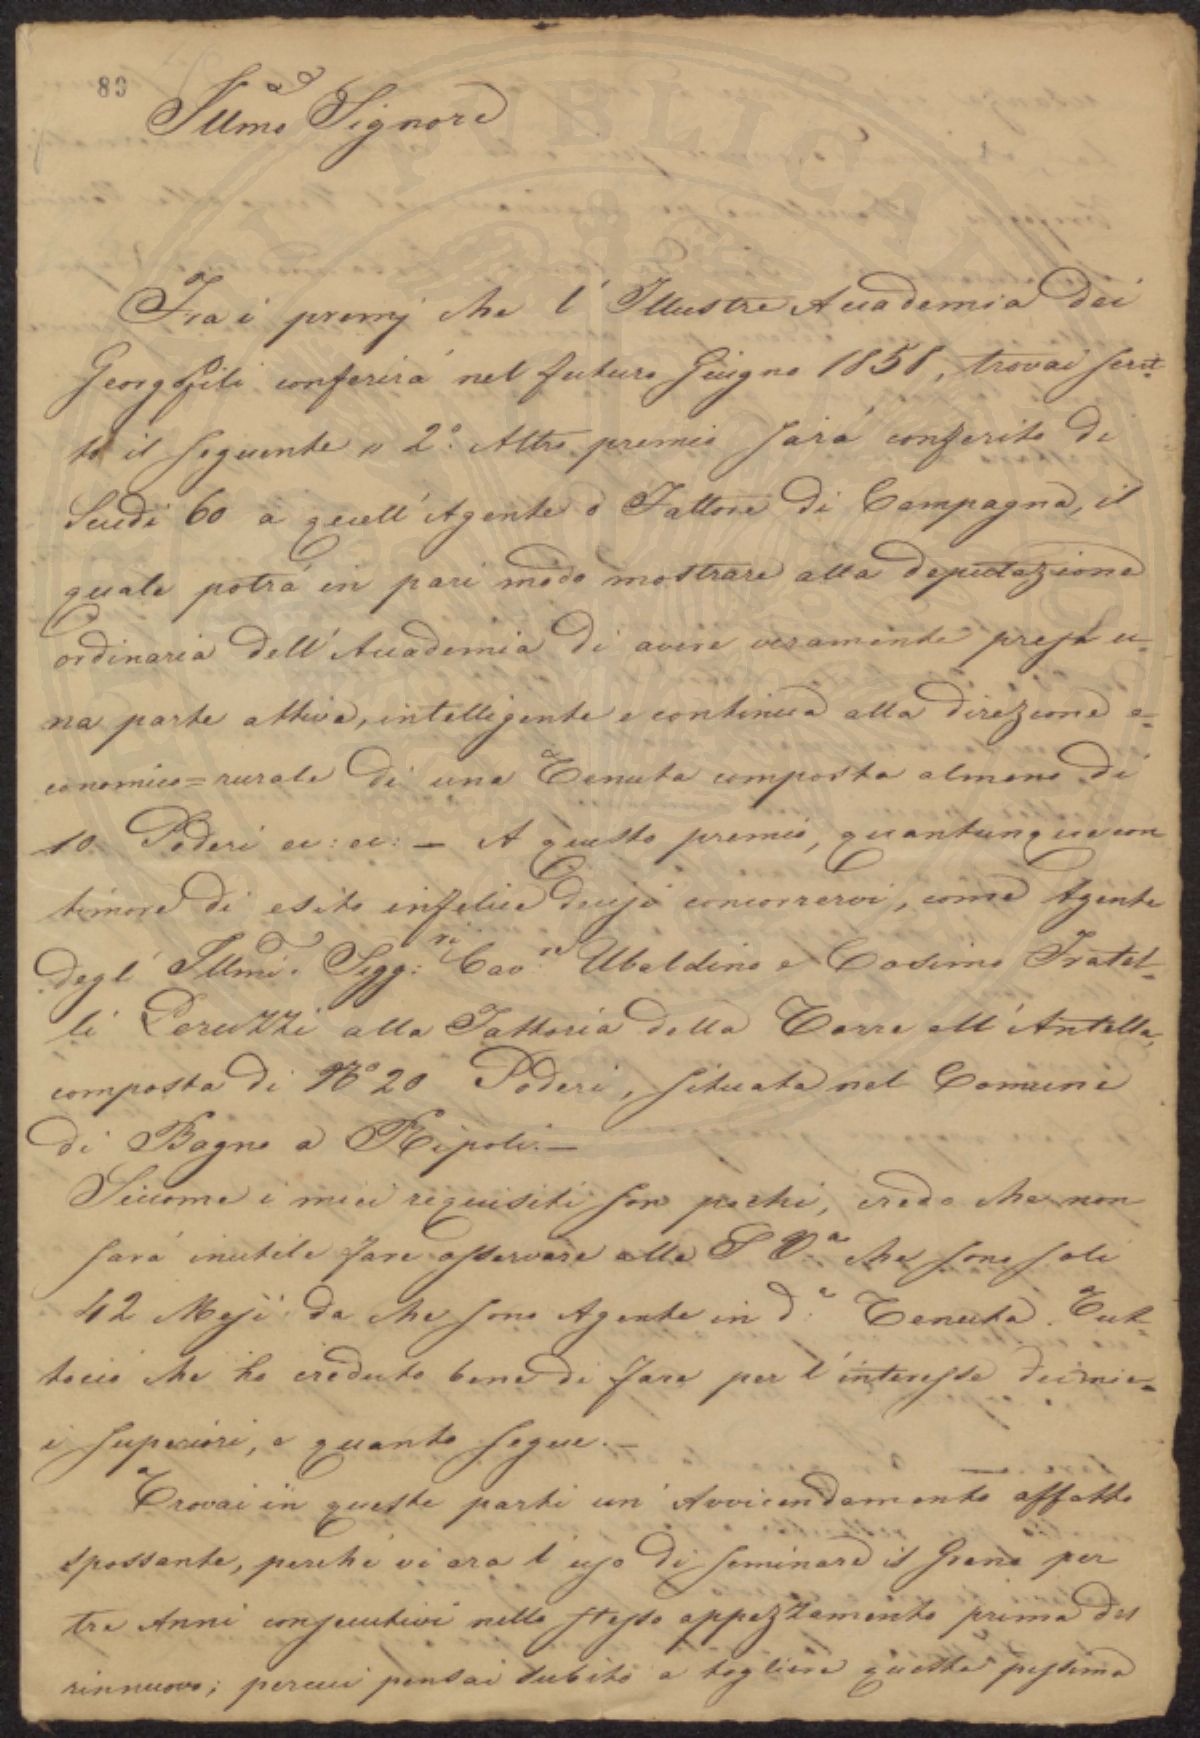 89
Illmo Signore
Fra i premj che l'Illustre Accademia dei
Georgofili conferirà nel futuro Giugno 1858, trovai scrit-
to il seguente „ 2°: Altro premio sarà conferito di
Scudi 60 a quell'Agente o Fattore di Campagna, il
quale potrà in pari modo mostrare alla deputazione
ordinaria dell'Accademia di avere veramente presa u=
na parte attiva, intelligente e continua alla direzione e=
conomico=rurale di una Tenuta composta almeno di
10 Poderi ec: ec: — A questo premio, quantunque con
timore di esito infelice decisi concorrervi, come Agente
degl'Illmi. Sigg:ri Cav:ri Ubaldino e Cosimo Fratel-
li Peruzzi alla Fattoria della Torre all'Antella,
composta di N° 20 Poderi, situata nel Comune
di Bagno a Ripoli.—
Siccome i miei requisiti son pochi, credo che non
sarà inutile fare osservare alla S V.a che sono soli
42 Mesi da che sono Agente in d.a Tenuta. Tut-
tociò che ho creduto bene di fare per l'interesse dei mie=
i superiori, è quanto segue.—
Trovai in queste parti un'Avvicendamento affatto
spossante, perché vi era l'uso di seminare il Grano per
tre Anni consecutivi nello stesso appezzamento prima del
rinnuovo; percui pensai subito a togliere questa pessima